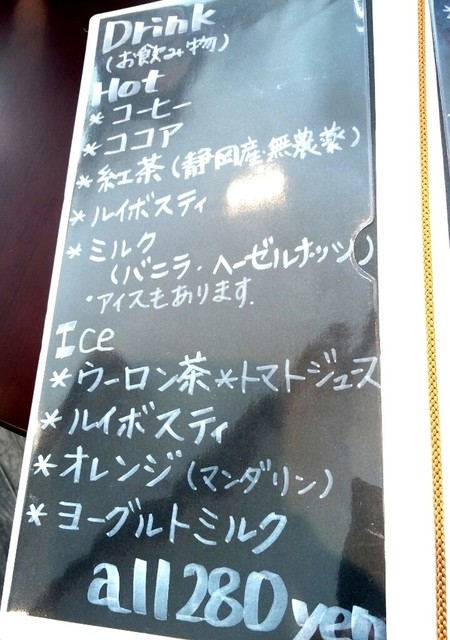 Drink
(お飲み物)
Hot
*コーヒー
*ココア
*紅茶(静岡産・無農薬)
*ルイボスティ
*ミルク
(バニラ・ヘーゼルナッツ)
・アイスもあります.
Ice
*ウーロン茶 *トマトジュース
*ルイボスティ
*オレンジ(マンダリン)
*ヨーグルトミルク
all 280yen